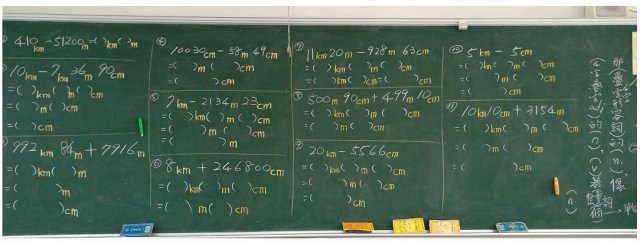 410km-51200m=( )km( )m
10km-7km36m90cm
=( )km( )m( )cm
=( )m( )cm
=( )cm
992km84m+7916m
=( )km( )m
=( )m
=( )cm
④
10030cm-58m49cm
=( )m( )cm
=( )cm
⑤
7km-2134m23cm
=( )km( )m( )cm
=( )m( )cm
=( )m
⑥
8km+246800cm
=( )km( )m( )cm
=( )m( )cm
⑦
11km20m-928m63cm
=( )km( )m( )cm
=( )km( )cm=( )cm
⑧
500m90cm+499m10cm
=( )km( )m( )cm
=( )m( )cm
⑨
20km-5566cm
=( )km( )m( )cm
=( )m( )cm
=( )cm
⑩
5km-5cm
=( )km( )m( )cm
=( )m( )cm
=( )cm
⑪
10km10cm+3154m
=( )km( )m( )cm
=( )m( )cm
=( )cm